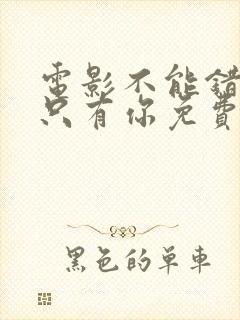 電影不能錯
只有你免費
黑色的單車